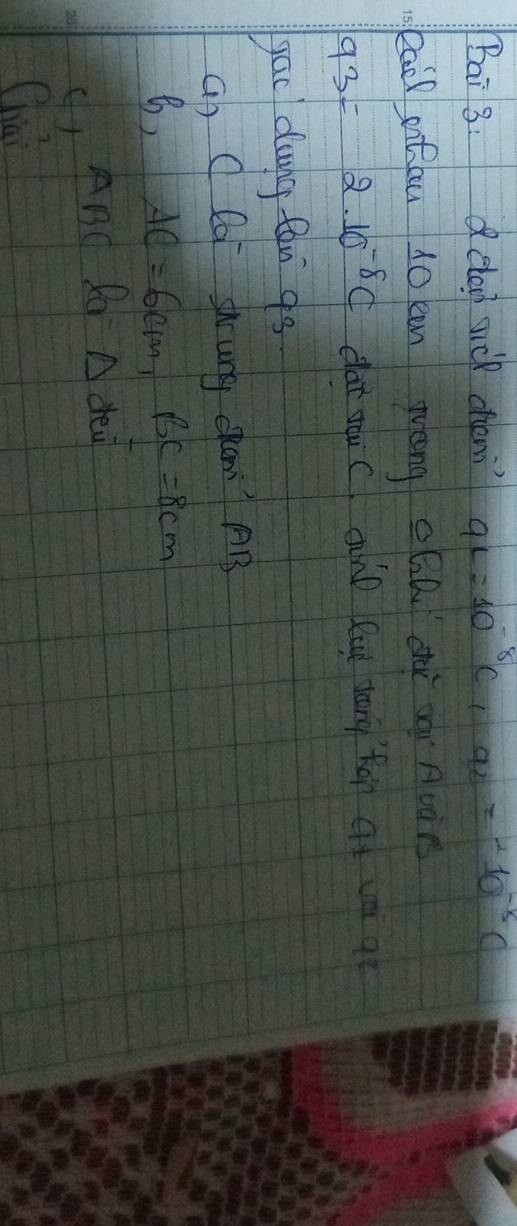 Bài 3: 2 điện tích điểm q1 = 10⁻⁸ C, q2 = -10⁻⁸ C
Cách nhau 10 cm trong chân không đặt tại A và B
q3 = 2.10⁻⁸C đặt tại C. tính lực tổng hợp q1 và q2
tác dụng lên q3.
a, C là trung điểm AB
b, AC = 6cm, BC = 8cm
c, ABC là Δ đều
Giải
15
20